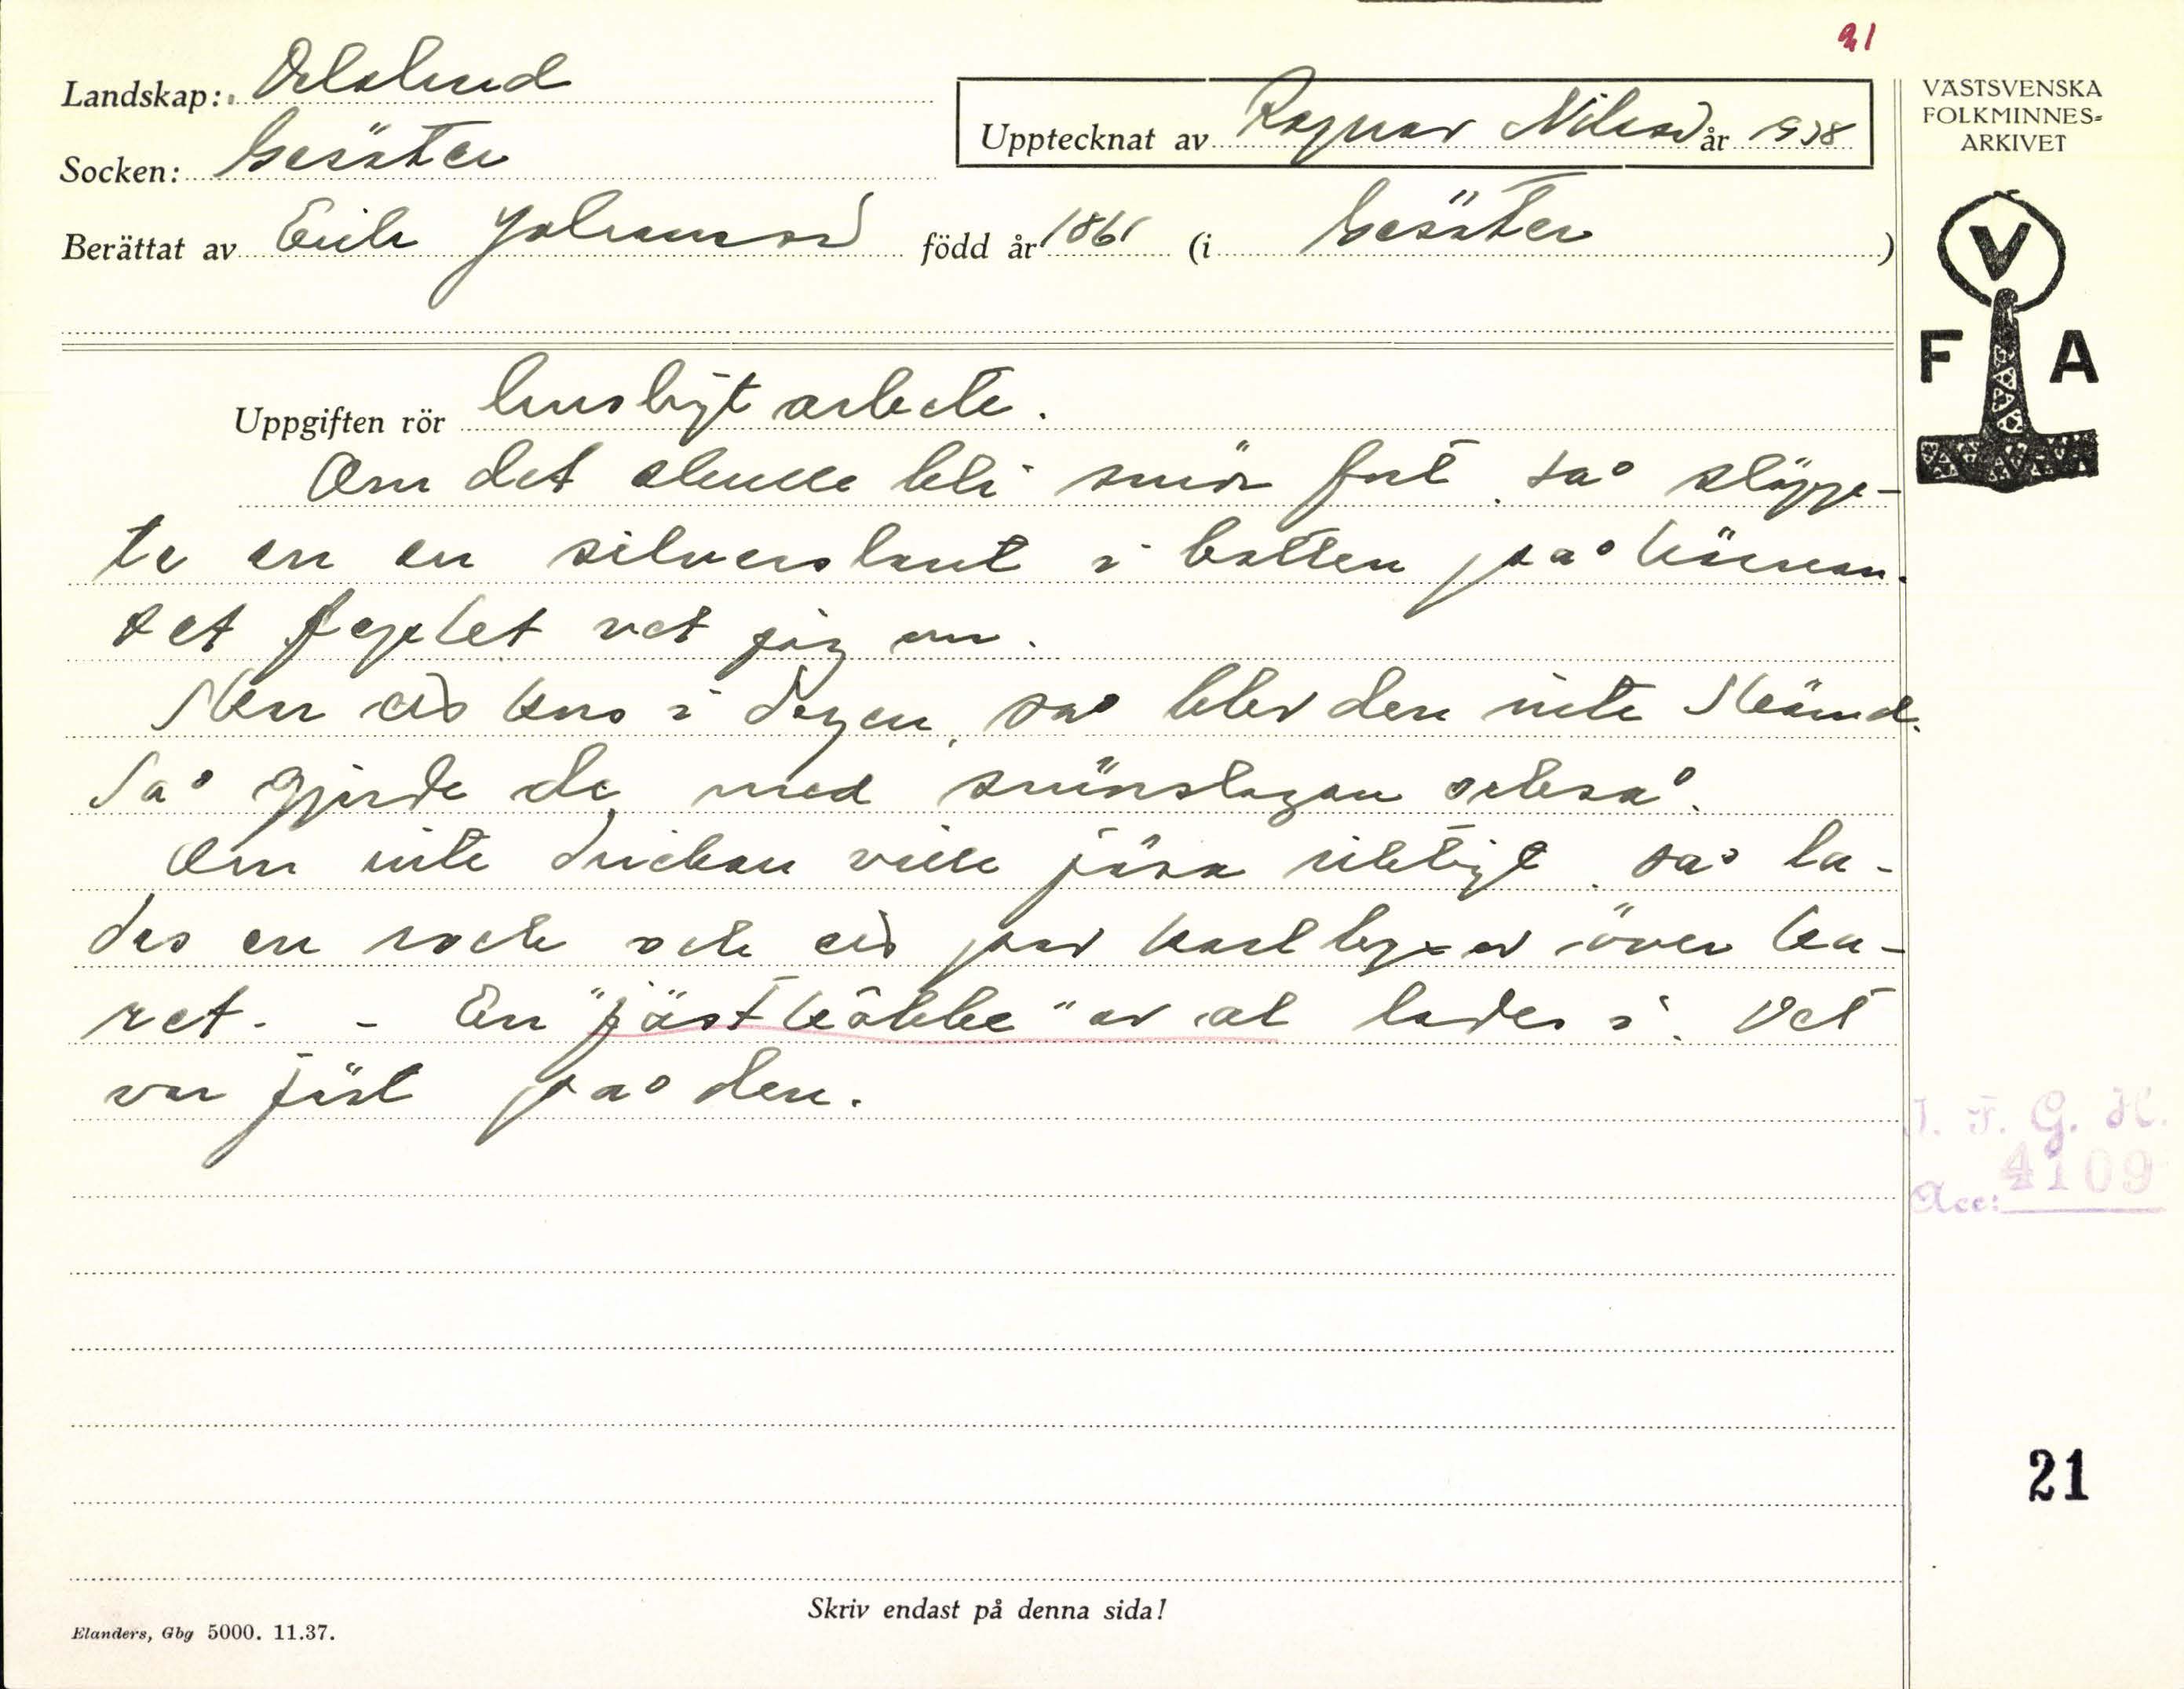 21
Landskap: Dalsland
VÄSTSVENSKA
FOLKMINNES=
ARKIVET
Upptecknat av Ragnar Nilsson år 1938
Socken: Gesäter
Berättat av Erik Johansson född år 1861 (i Gesäter)
V
F A
Uppgiften rör husligt arbete.
Om det skulle bli smör fort, så släpp-
te en en silverslant i botten på kärnan.
Det knepet vet jag om.
Men ett kors i degen, så blev den inte skämd.
Så gjorde de med smörslagan också.
Om inte drickan ville jäsa riktigt, så la-
des en rock och ett par karlbyxor över ka-
ret. - En "jästkäbbe" av al lades i. Det
var jäst på den.
I. F. G. H.
4109
Acc:
21
Skriv endast på denna sida!
Elanders, Gbg 5000. 11.37.